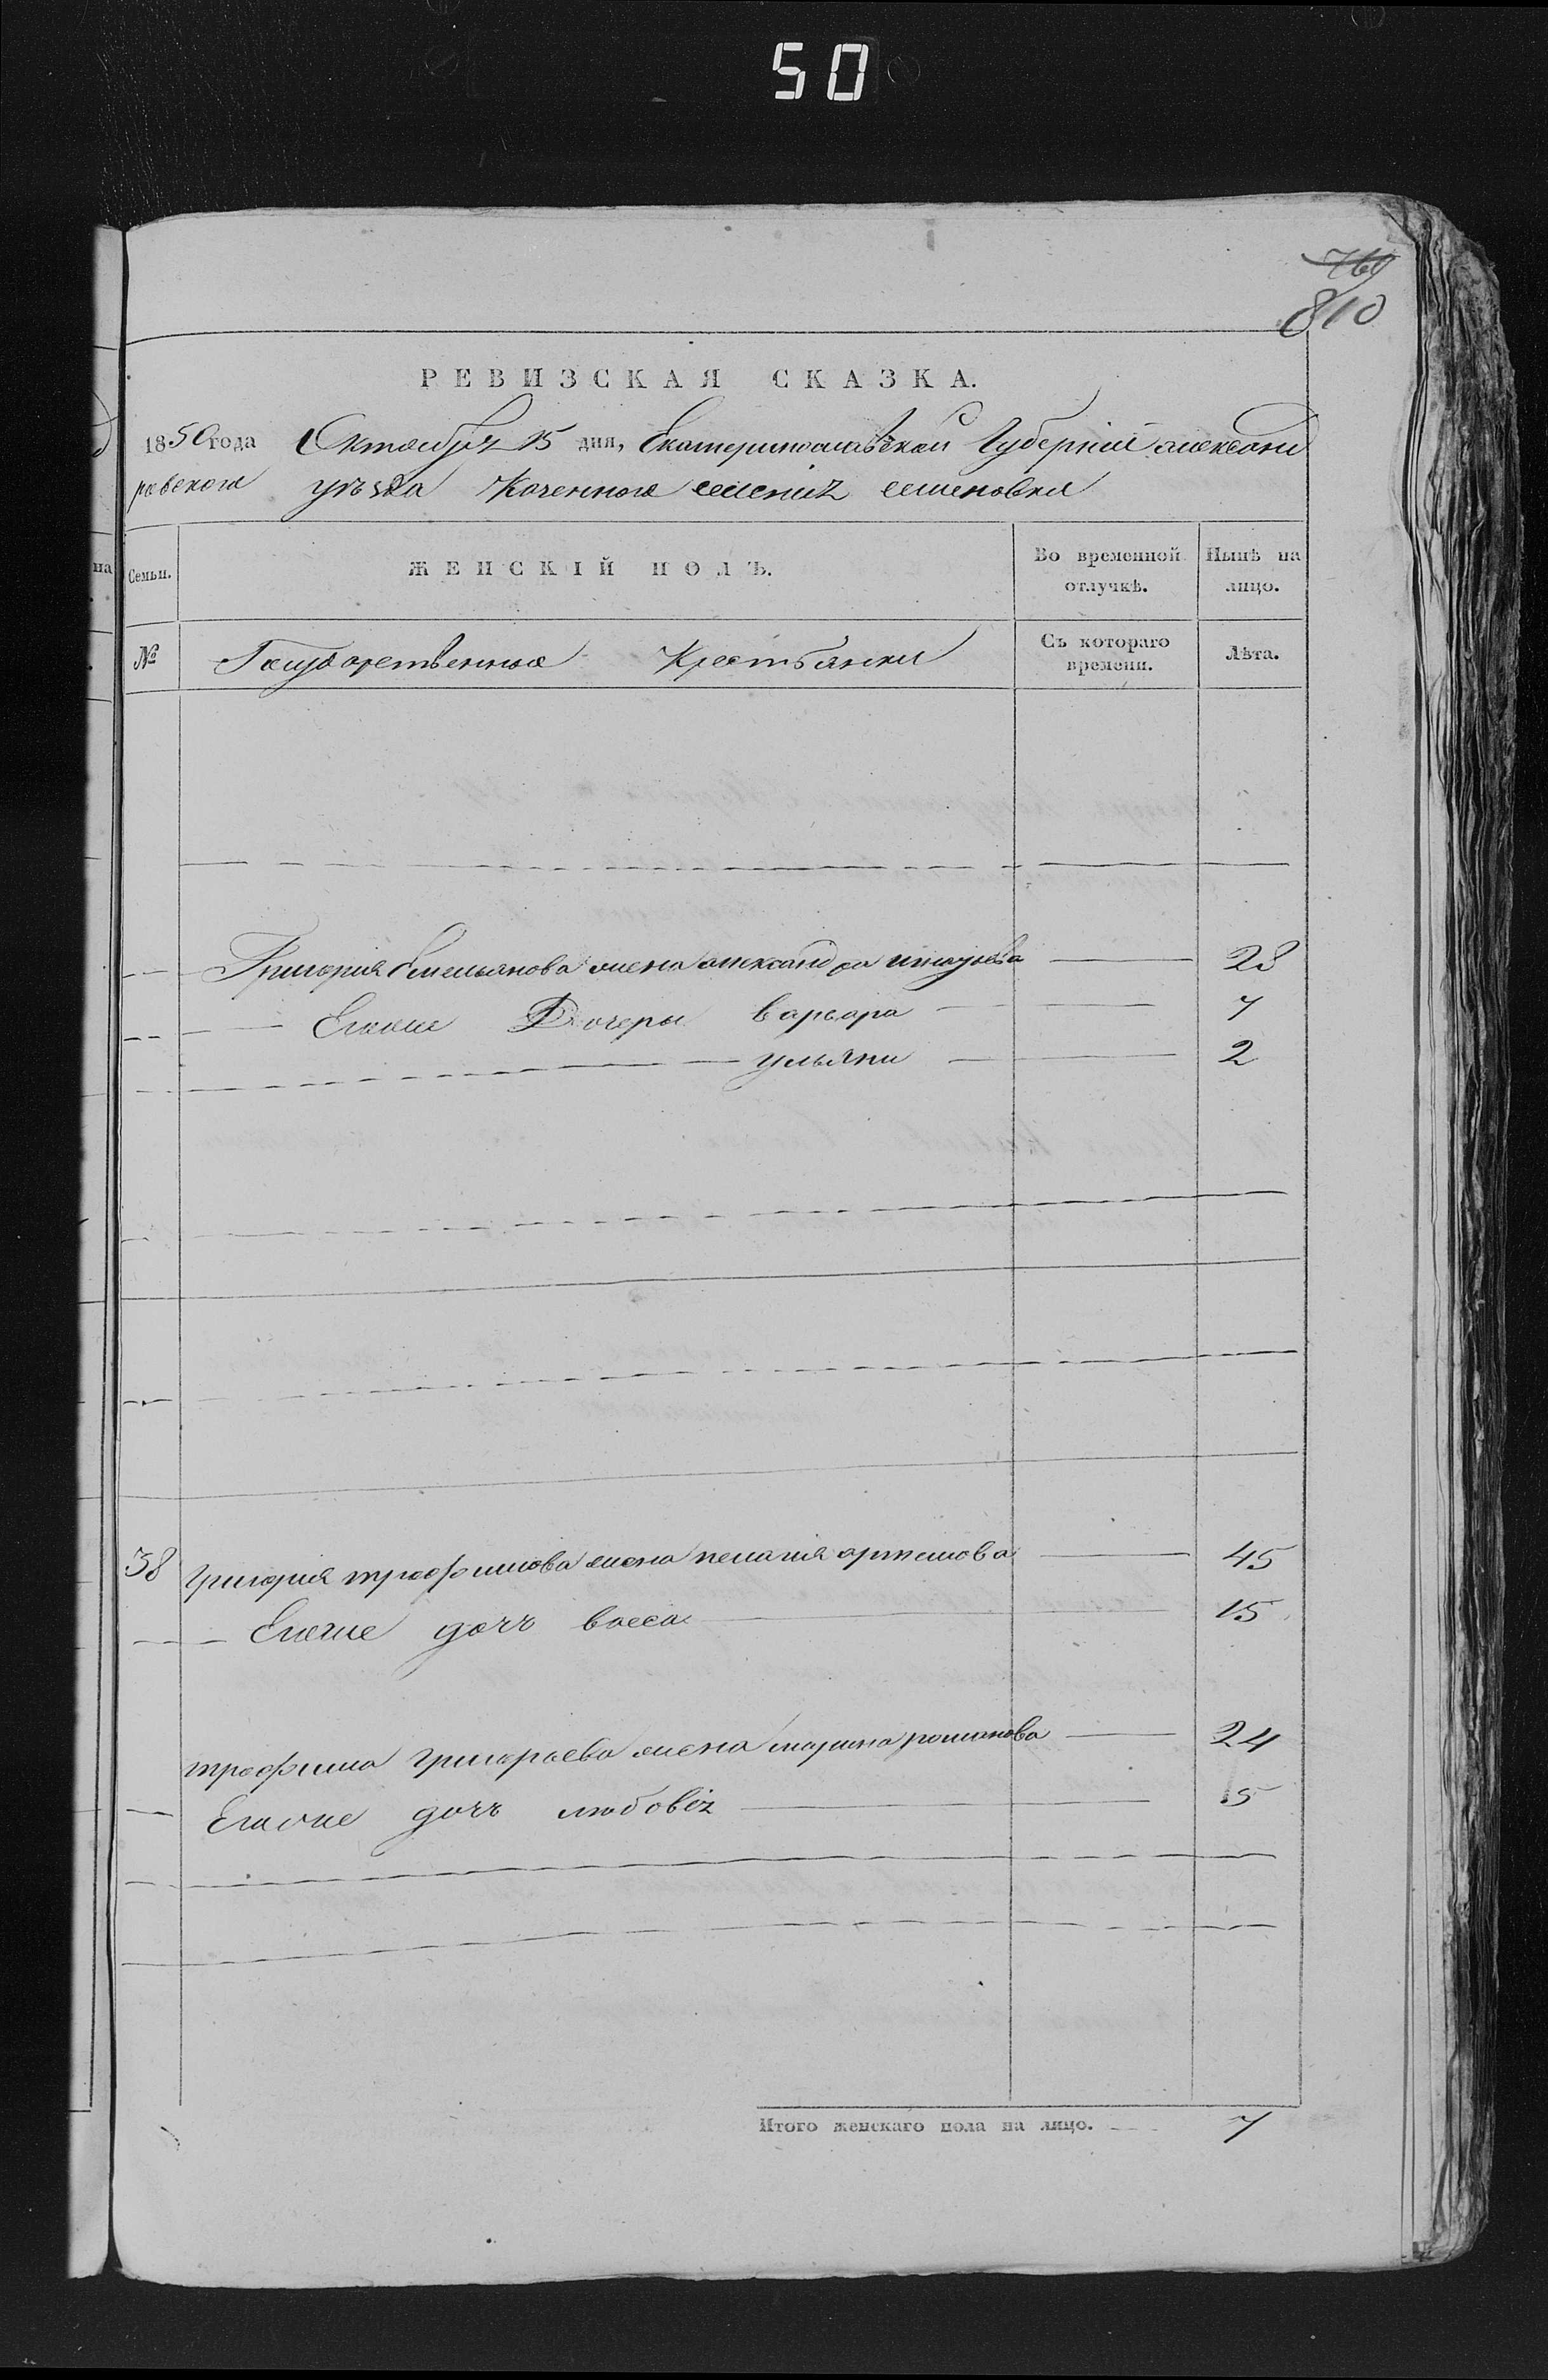 50
769
810
РЕВИЗСКАЯ СКАЗКА.
1850 года Октября 15 дня, Екатеринославской Губернии александ
ровского уезда Козенного селения семеновки
на
Семьи. ЖЕНСКІЙ ПОЛЪ. Во временной отлучкѣ. Нынѣ на лицо.
№ Государственные Крестьянки Съ котораго времени. Лѣта.
Григория Емельянова жена александра 28
Егоже Дочеры варвара 7
ульяни 2
38 григория трофимова жена пелагия артемова 45
Егоже дочь васса 15
трофима григорьева жена марина романова 24
Егоже дочь любовь 5
Итого женскаго пола на лицо. 7